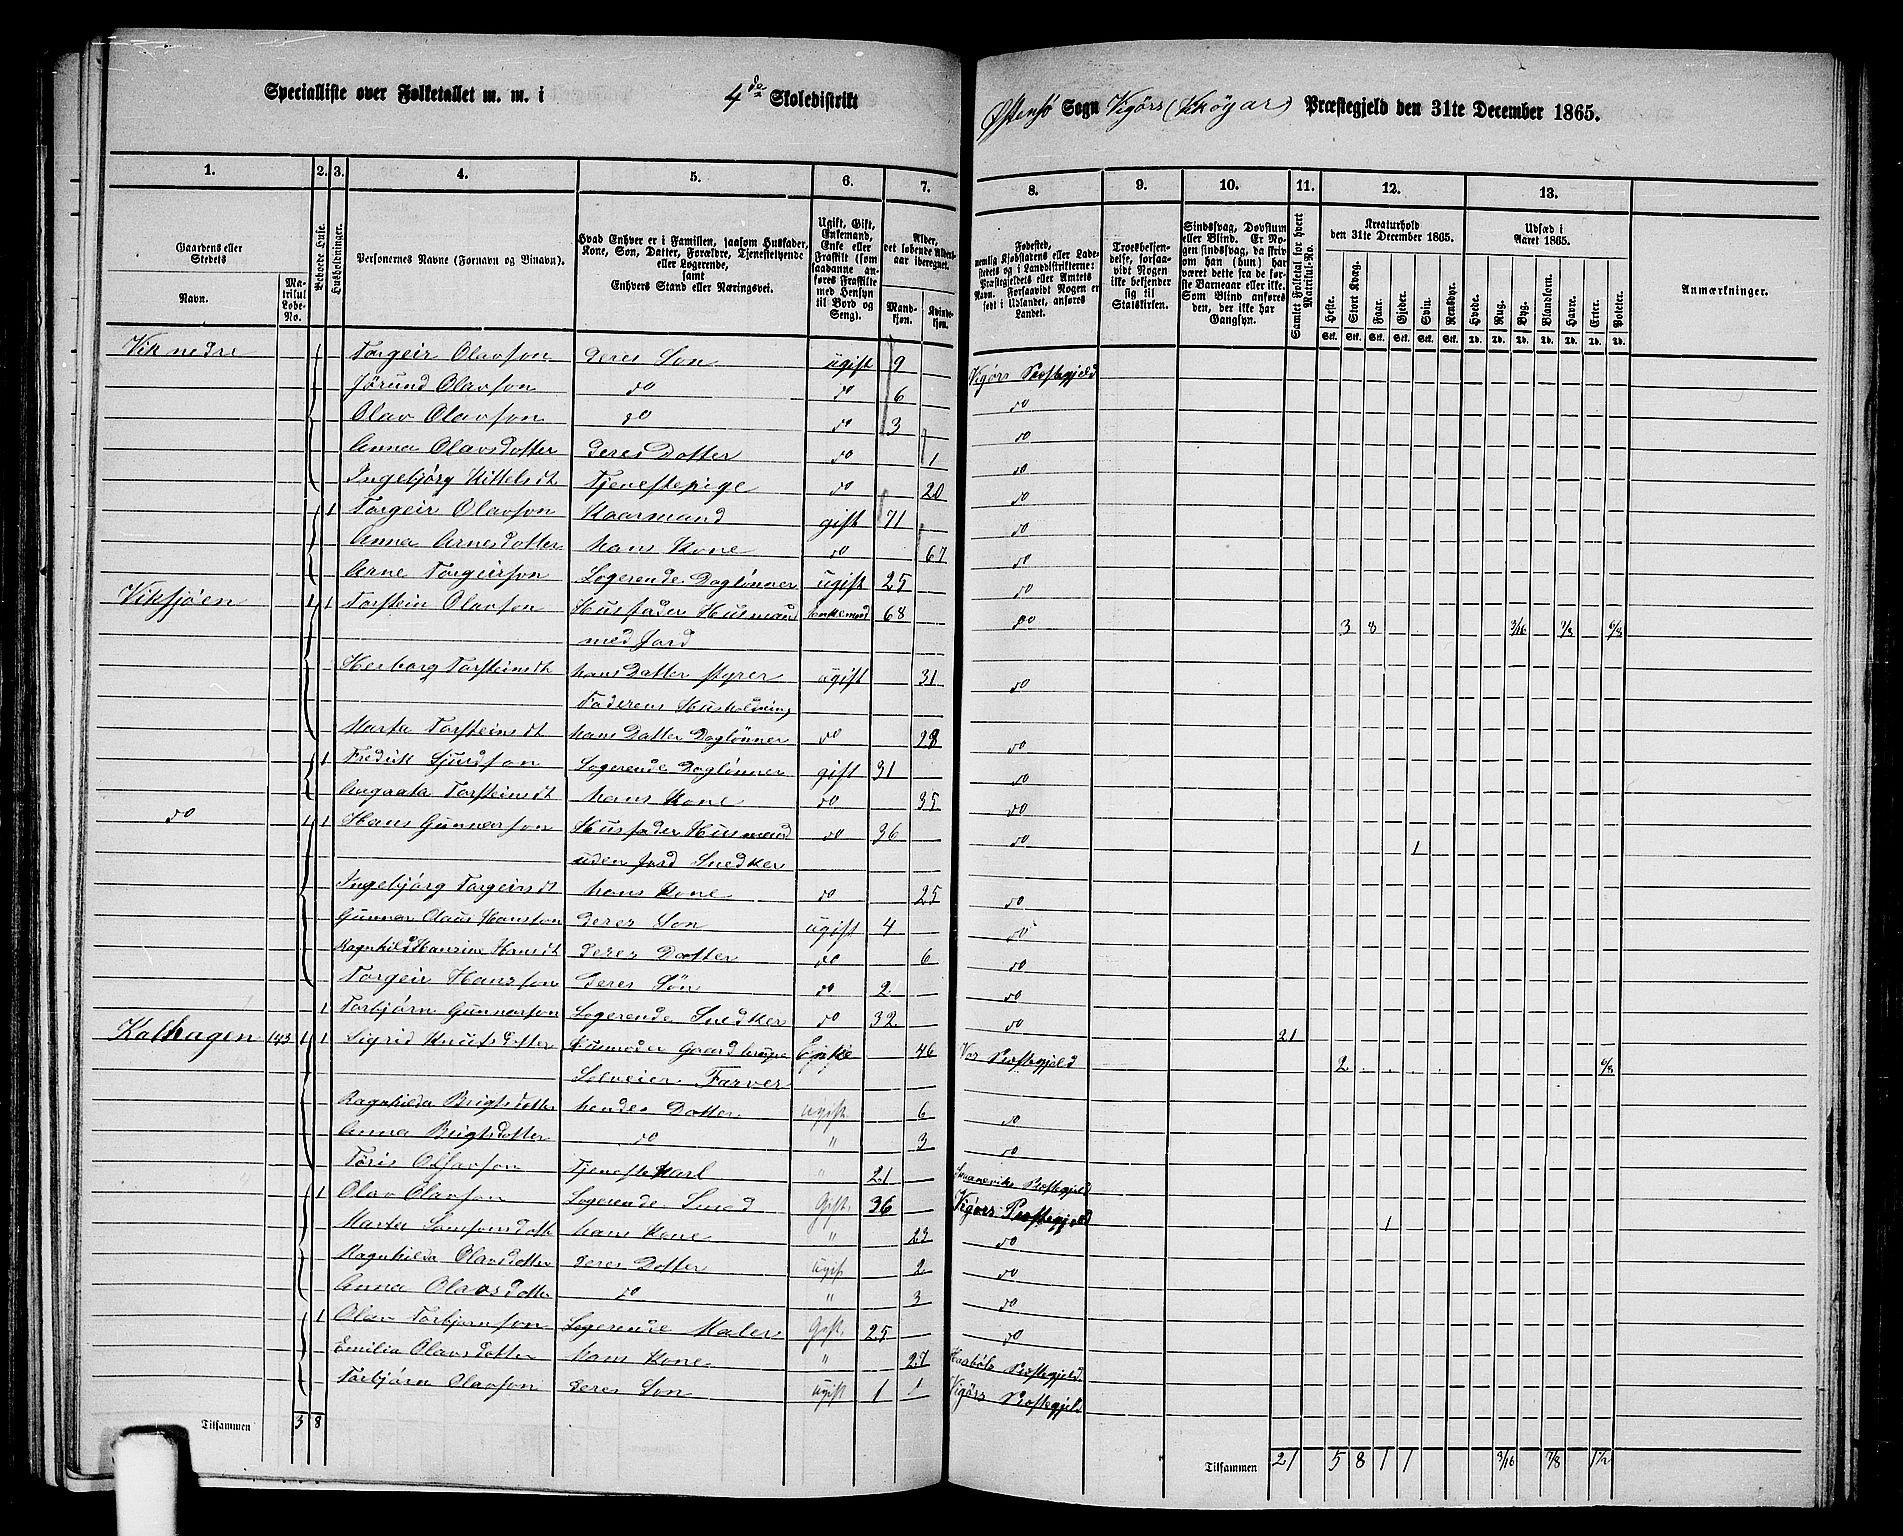 Specialliste over Folketallet m. m. i 4de Skoledistrikt
Østensø Sogn Vigørs (Vikøyar) Præstegjeld den 31te December 1865.
1. 2. 3. 4. 5. 6. 7. 8. 9. 10. 11. 12. 13.
Gaardens eller Stedets
Navn.
Matrikul Løbe-No.
Beboede Huse.
Husholdninger.
Personernes Navne (Fornavn og Binavn).
Hvad Enhver er i Familien, saasom Husfader, Kone, Søn, Datter, Forældre, Tjenestetyende eller Logerende,
samt
Enhvers Stand eller Næringsvei.
Ugift, Gift, Enkemand, Enke eller Fraskilt (som saadanne anføres Fraskilte med Hensyn til Bord og Seng).
Alder, det løbende Alders-aar iberegnet.
Mandkjøn. Kvindekjøn.
Fødested, nemlig Kjøbstadens eller Ladestedets og i Landdistrikterne: Præstegjeldets eller Amtets Navn. Forsaavidt Nogen er født i Udlandet, anføres Landet.
Troesbekjendelse, forsaavidt Nogen ikke bekjender sig til Statskirken.
Sindssvag, Døvstum eller Blind. Er Nogen sindssvag, da skriv om han (hun) har været dette fra de første Barneaar eller ikke. Som Blind anføres den, der ikke har Gangsyn.
Samlet Folketal for hvert Matrikul-No.
Kreaturhold den 31te December 1865.
Heste. Stort Kvæg. Faar. Gjeder. Svin. Rensdyr.
Udsæd i Aaret 1865.
Hvede. Rug. Byg. Blandkorn. Havre. Erter. Poteter.
Anmærkninger.
Vik nedre Torgeir Olavson deres Søn ugift 9 Vigørs Præstegjeld
Jørund Olavson do do 6 do
Olav Olavson do do 3 do
Anna Olavsdotter deres Dotter do 1 do
Ingebjørg Kittelsdt Tjenestepige do 20 do
1 Torgeir Olavson Kaarmand gift 71 do
Anna Arnesdotter hans Kone do 67 do
Arne Torgeirson Logerende Daglønner ugift 25 do
Viksjøen 1 1 Torstein Olavson Husfader Husmand Enkemand 68 do 3 8 3/16 7/8 6/8
med Jord
Herborg Torsteinsdt hans Datter styrer ugift 31 do
Faderens Husholdning
Marta Torsteinsdt hans Datter Daglønner do 28 do
1 Fredrik Sjurdson Logerende Daglønner gift 31 do
Angaata Torsteinsdt hans Kone do 35 do
do 1 1 Hans Gunnarson Husfader Husmand do 36 do 1
uden Jord Snedker
Ingebjørg Torgeirsdt hans Kone do 25 do
Gunnar Olaus Hansson deres Søn ugift 4 do
Ragnhild Hansine Hansdt deres Dotter do 6 do
Torgeir Hansson deres Søn do 2 do
1 Torbjørn Gunnarson Logerende Snedker do 32 do 21
Kalhagen 143 1 1 Sigrid Knutsdotter Husmoder Gaardbruge Enke 46 Vos Præstegjeld 2 6/8
Selveier Farver
Ragnhilda Brigtsdotter hendes Dotter ugift 6 do
Anna Brigtsdotter do " 3 do
Toris Olavson Tjenestekarl " 21 Præstegjeld
1 Olav Olavson Logerende Smed Gift 36 Vigørs Præstegjeld 1
Marta Samsonsdotte hans Kone " 23 do
Ragnhilda Olavsdotter deres Dotter ugift 2 do
Anna Olavsdotter do " 3 do
1 Olav Torbjørnson Logerende Maler Gift 25 do
Emilia Olavsdotter hans Kone " 27 Præstegjeld
Torbjørn Olavson deres Søn ugift 1 1 Vigørs Præstegjeld
Tilsammen 3 8
Tilsammen 21 5 8 1 1 3/16 7/8 1 1/2